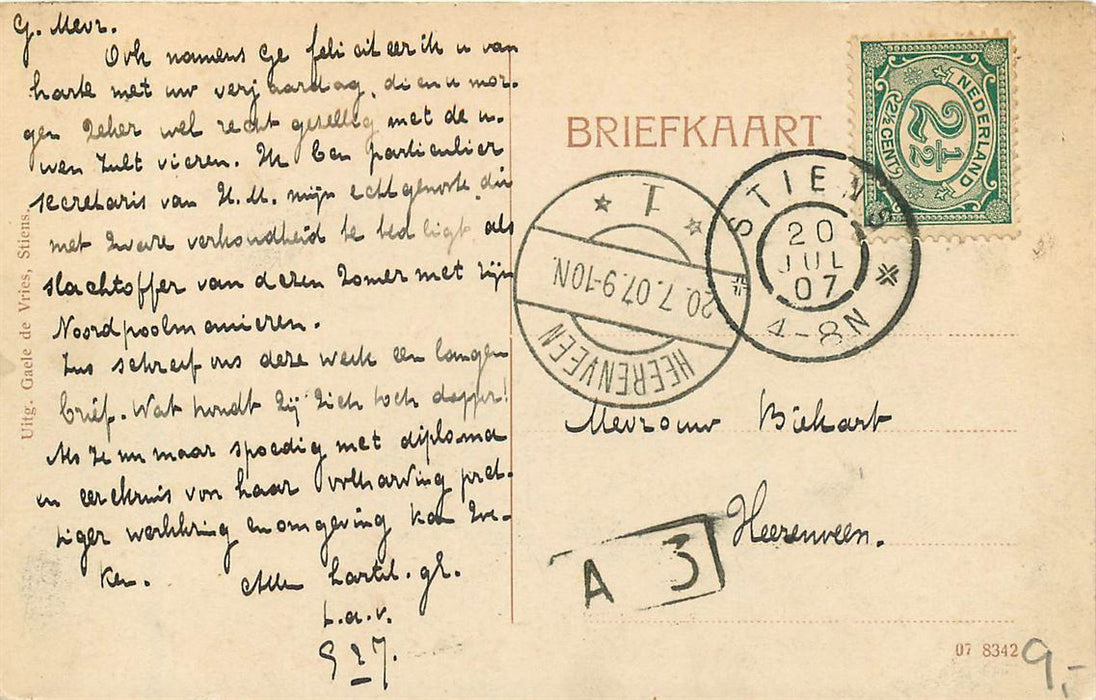 G. Mevr.
Ook namens Ge feliciteer ik u van
harte met uw verjaardag, dien u mor-
gen zeker wel recht gezellig met de u-
wen zult vieren. Ik ben particulier
secretaris van H.M. mijn echtgenoote die
met zware verkoudheid te bed ligt, als
slachtoffer van dezen zomer met zijn
Noordpoolmanieren.
Zus schreef ons deze week een langen
brief. Wat houdt zij zich toch dapper!
Als ze nu maar spoedig met diploma
en eerekruis voor haar volharding pret-
tiger werkkring en omgeving kan zoe-
ken. Allen hartel. gr.
t.a.v.
G & J.
Uitg. Gaele de Vries, Stiens.
BRIEFKAART
NEDERLAND
2½
(2½ CENT)
STIENS
20
JUL
07
4-8N
1
20.7.07.9-10N.
HEERENVEEN
Mevrouw Biekart
Heerenveen.
A 3
07 8342
9,-